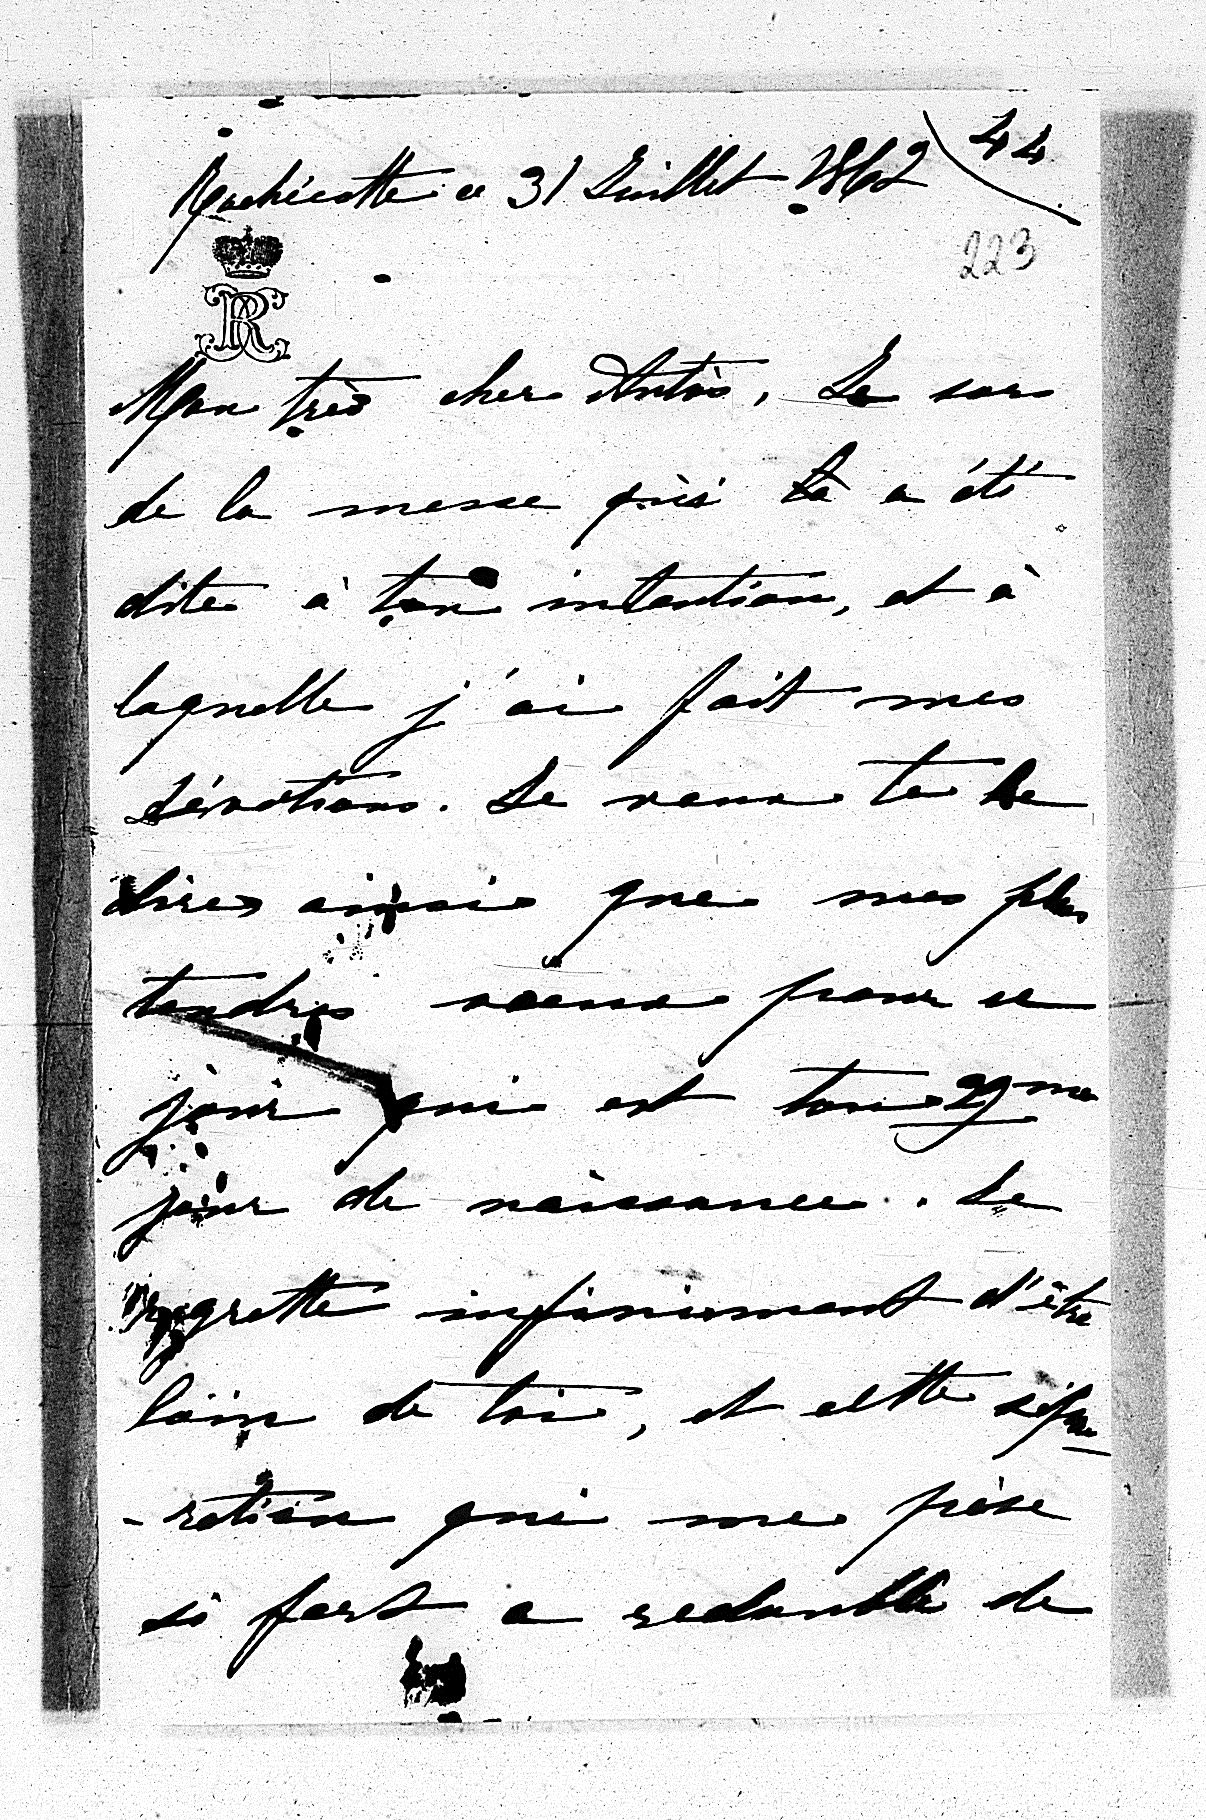 Rochecotte ce 31 Juillet 1862
44
223
R
Mon très cher Antos, Je sors
de la messe qui a été
dite à ton intention, et à
laquelle j'ai fait mes
dévotions. Je veux te le
dire ainsi que mes plus
tendres vœux pour ce
jour qui est ton 29me
jour de naissance. Je
regrette infiniment d'être
loin de toi, et cette sépa-
-ration qui me pèse
si fort a redoublé de